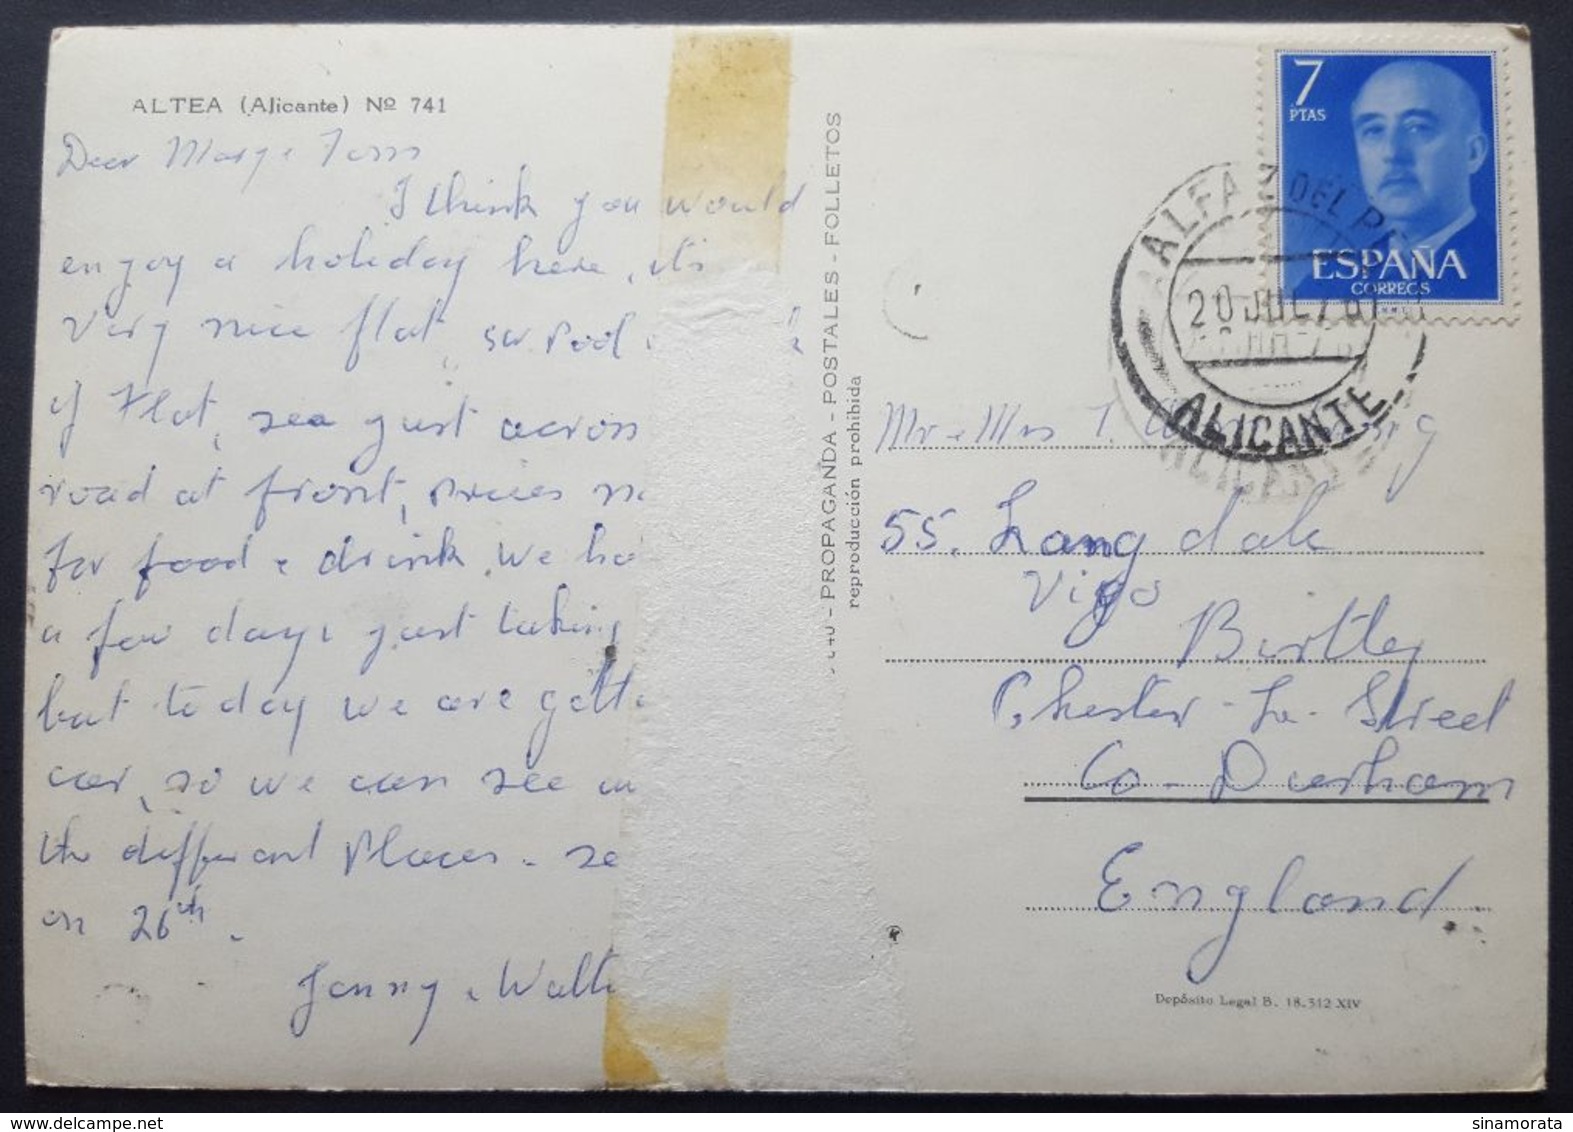 ALTEA (Alicante) Nº 741
Dear Marge & Tom
I think you would
enjoy a holiday here, its
Very nice flat, sw. Pool
of Flat, sea just across
road at front, Prices
for food & drink. We
a few days just taking
but today we are
car, so we can see
the different Places.
on 26th.
Jenny & Walt
PROPAGANDA - POSTALES - FOLLETOS
reproducción prohibida
7
PTAS
ESPAÑA
CORREOS
ALFAZ DEL
20 JUL 76
ALICANTE
Mr & Mrs T.
55. Langdale
Vigo
Birtley
Chester-Le-Street
Co-Durham
England.
Depósito Legal B. 18.512 XIV
sinamorata